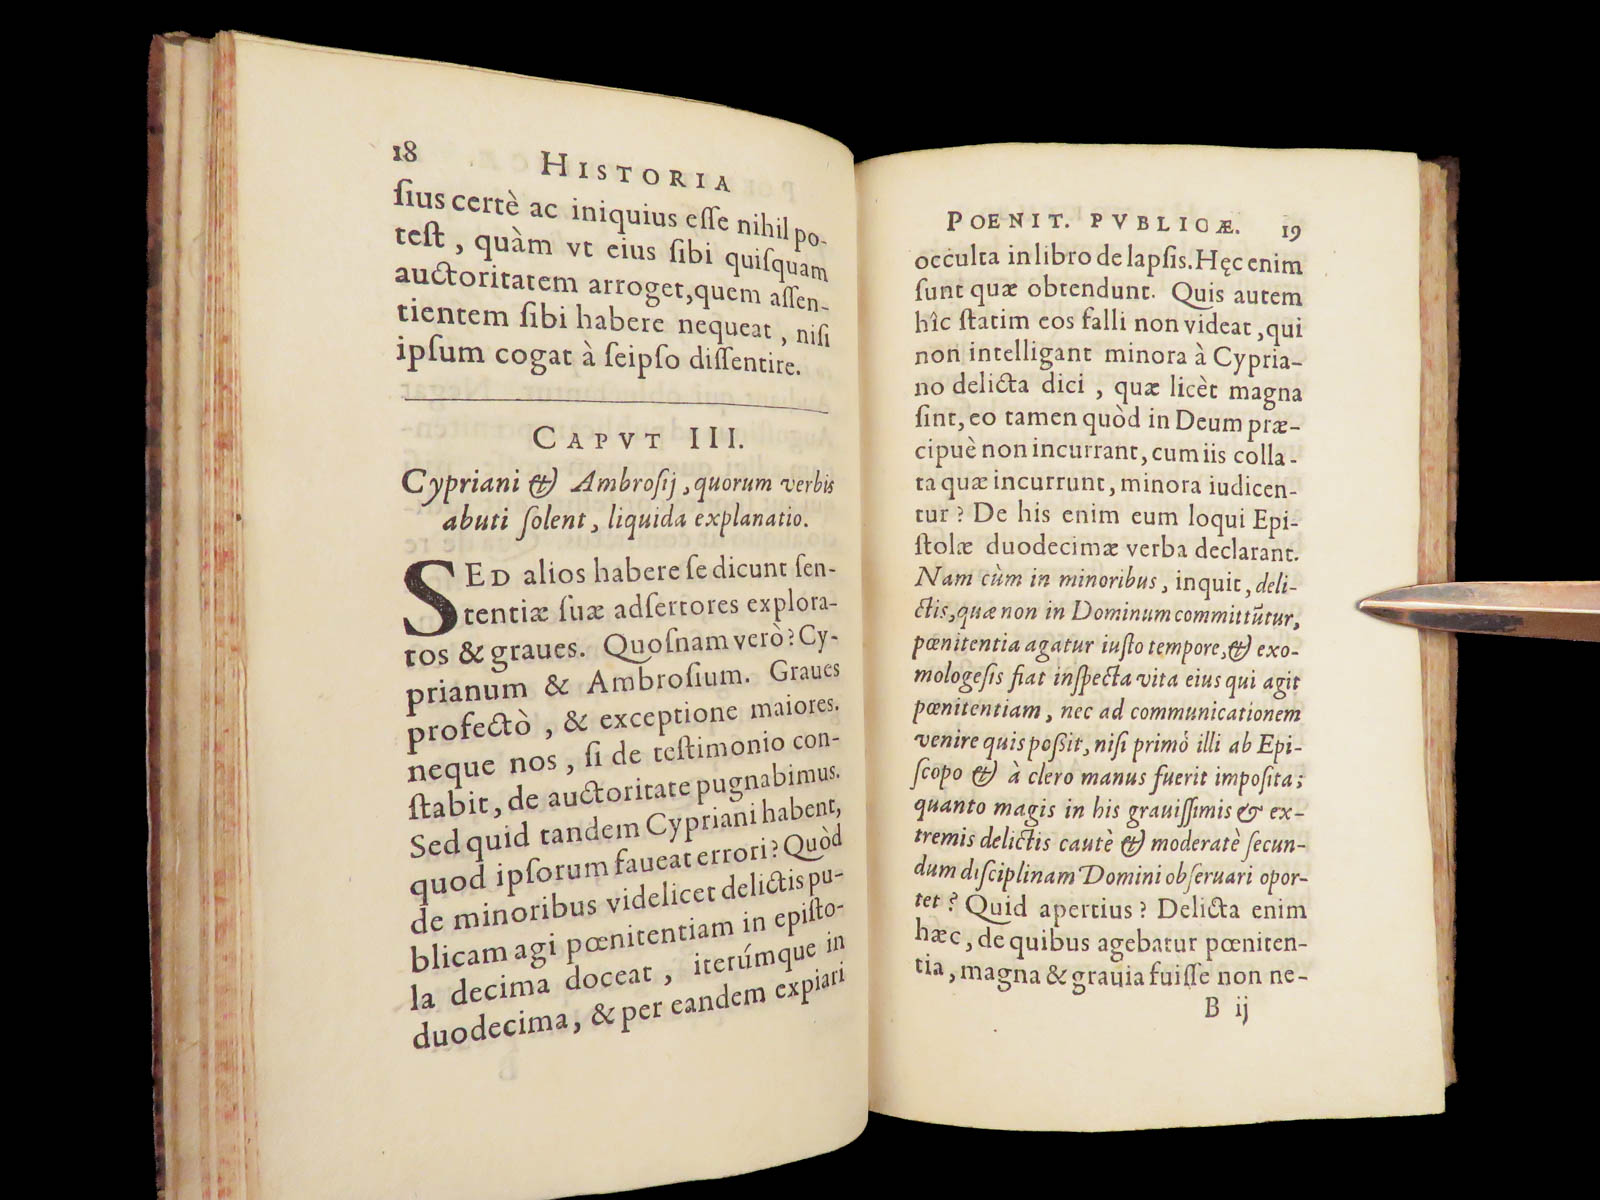 18 HISTORIA
ſius certè ac iniquius eſſe nihil po-
teſt, quàm vt eius ſibi quiſquam
auctoritatem arroget, quem aſſen-
tientem ſibi habere nequeat, niſi
ipſum cogat à ſeipſo diſſentire.
CAPVT III.
Cypriani & Ambroſij, quorum verbis
abuti ſolent, liquida explanatio.
SED alios habere ſe dicunt ſen-
tentiæ ſuæ adſertores explora-
tos & graues. Quoſnam verò? Cy-
prianum & Ambroſium. Graues
profectò, & exceptione maiores.
neque nos, ſi de teſtimonio con-
ſtabit, de auctoritate pugnabimus.
Sed quid tandem Cypriani habent,
quod ipſorum faueat errori? Quòd
de minoribus videlicet delictis pu-
blicam agi pœnitentiam in epiſto-
la decima doceat, iterúmque in
duodecima, & per eandem expiari
POENIT. PVBLICÆ. 19
occulta in libro de lapſis. Hęc enim
ſunt quæ obtendunt. Quis autem
hîc ſtatim eos falli non videat, qui
non intelligant minora à Cypria-
no delicta dici, quæ licèt magna
ſint, eo tamen quòd in Deum præ-
cipuè non incurrant, cum iis colla-
ta quæ incurrunt, minora iudicen-
tur? De his enim eum loqui Epi-
ſtolæ duodecimæ verba declarant.
Nam cùm in minoribus, inquit, deli-
ctis, quæ non in Dominum committũtur,
pœnitentia agatur iuſto tempore, & exo-
mologeſis fiat inſpecta vita eius qui agit
pœnitentiam, nec ad communicationem
venire quis poßit, niſi primò illi ab Epi-
ſcopo & à clero manus fuerit impoſita;
quanto magis in his grauiſſimis & ex-
tremis delictis cautè & moderatè ſecun-
dum diſciplinam Domini obſeruari opor-
tet? Quid apertius? Delicta enim
hæc, de quibus agebatur pœniten-
tia, magna & grauia fuiſſe non ne-
B ij